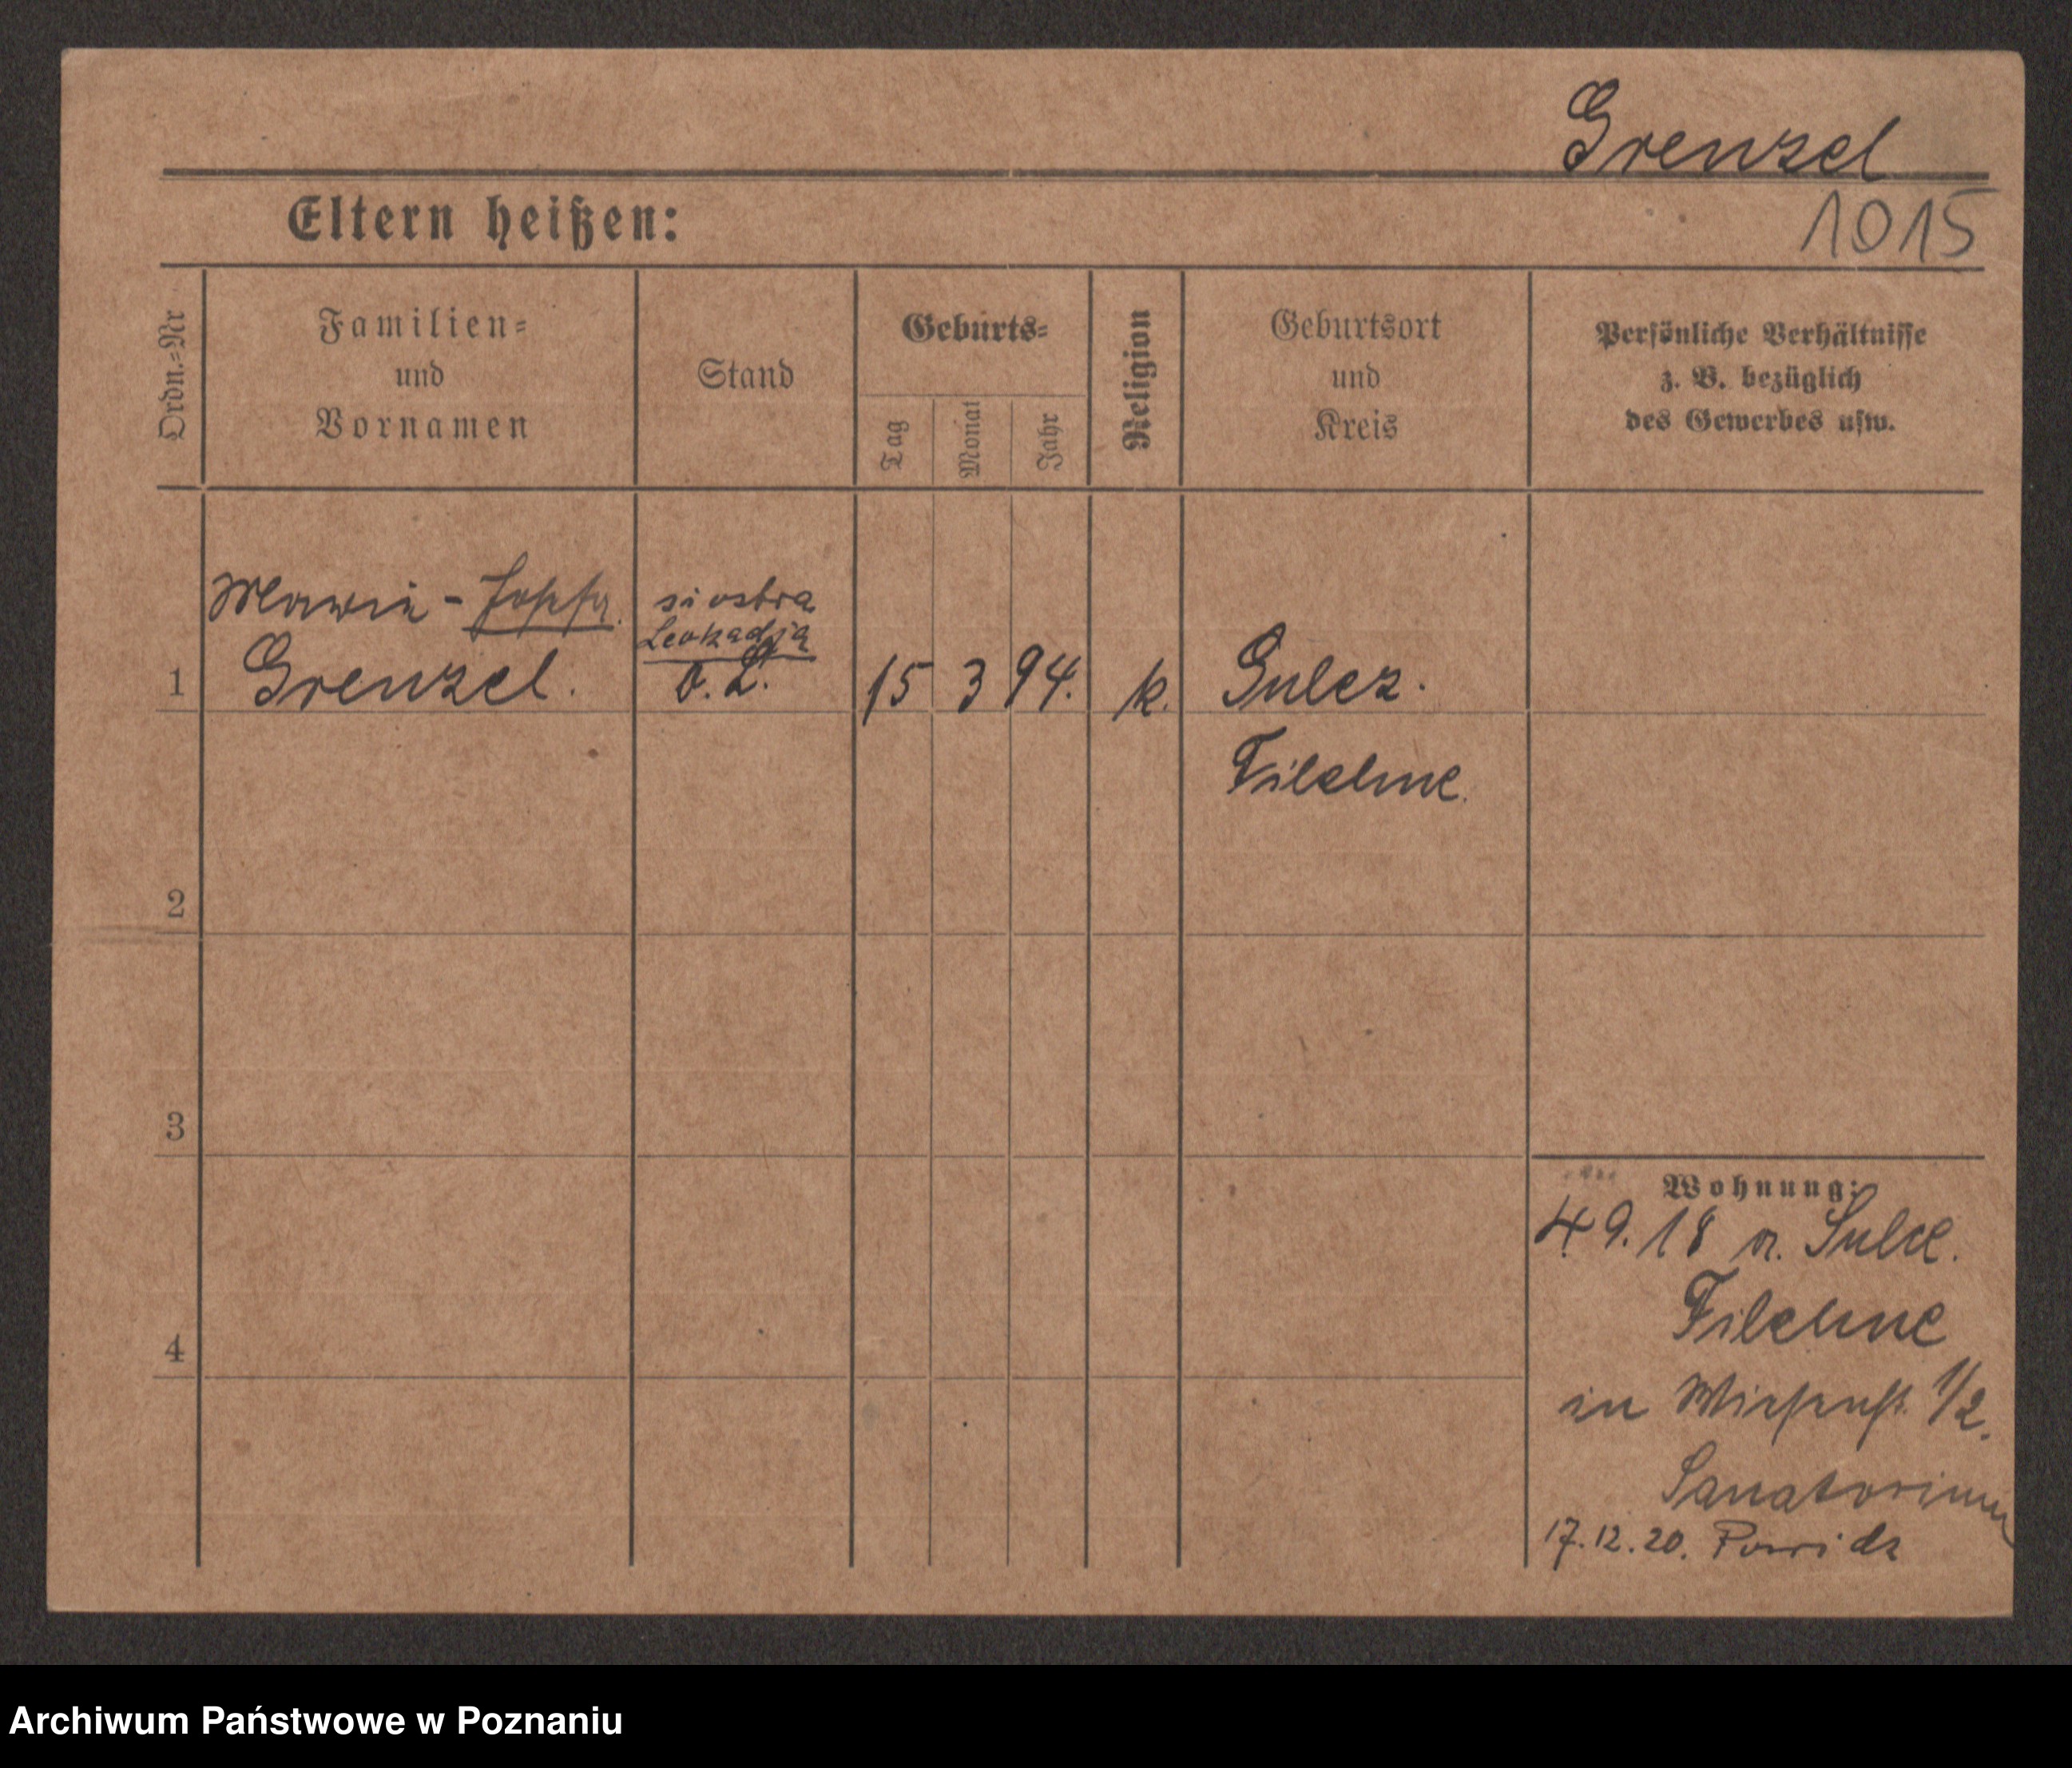 Grenzel
1015
Eltern heißen:
Ordn.=Nr
Familien=
und
Vornamen
Stand
Geburts=
Tag
Monat
Jahr
Religion
Geburtsort
und
Kreis
Persönliche Verhältnisse
z. B. bezüglich
des Gewerbes usw.
siostra
Leokadja
1
Grenzel.
15
3
94.
k.
Gulcz.
Filehne.
2
3
4
Wohnung:
4.9.18
Filehne
in
1/2.
Sanatorium
17.12.20. Powidz
Archiwum Państwowe w Poznaniu